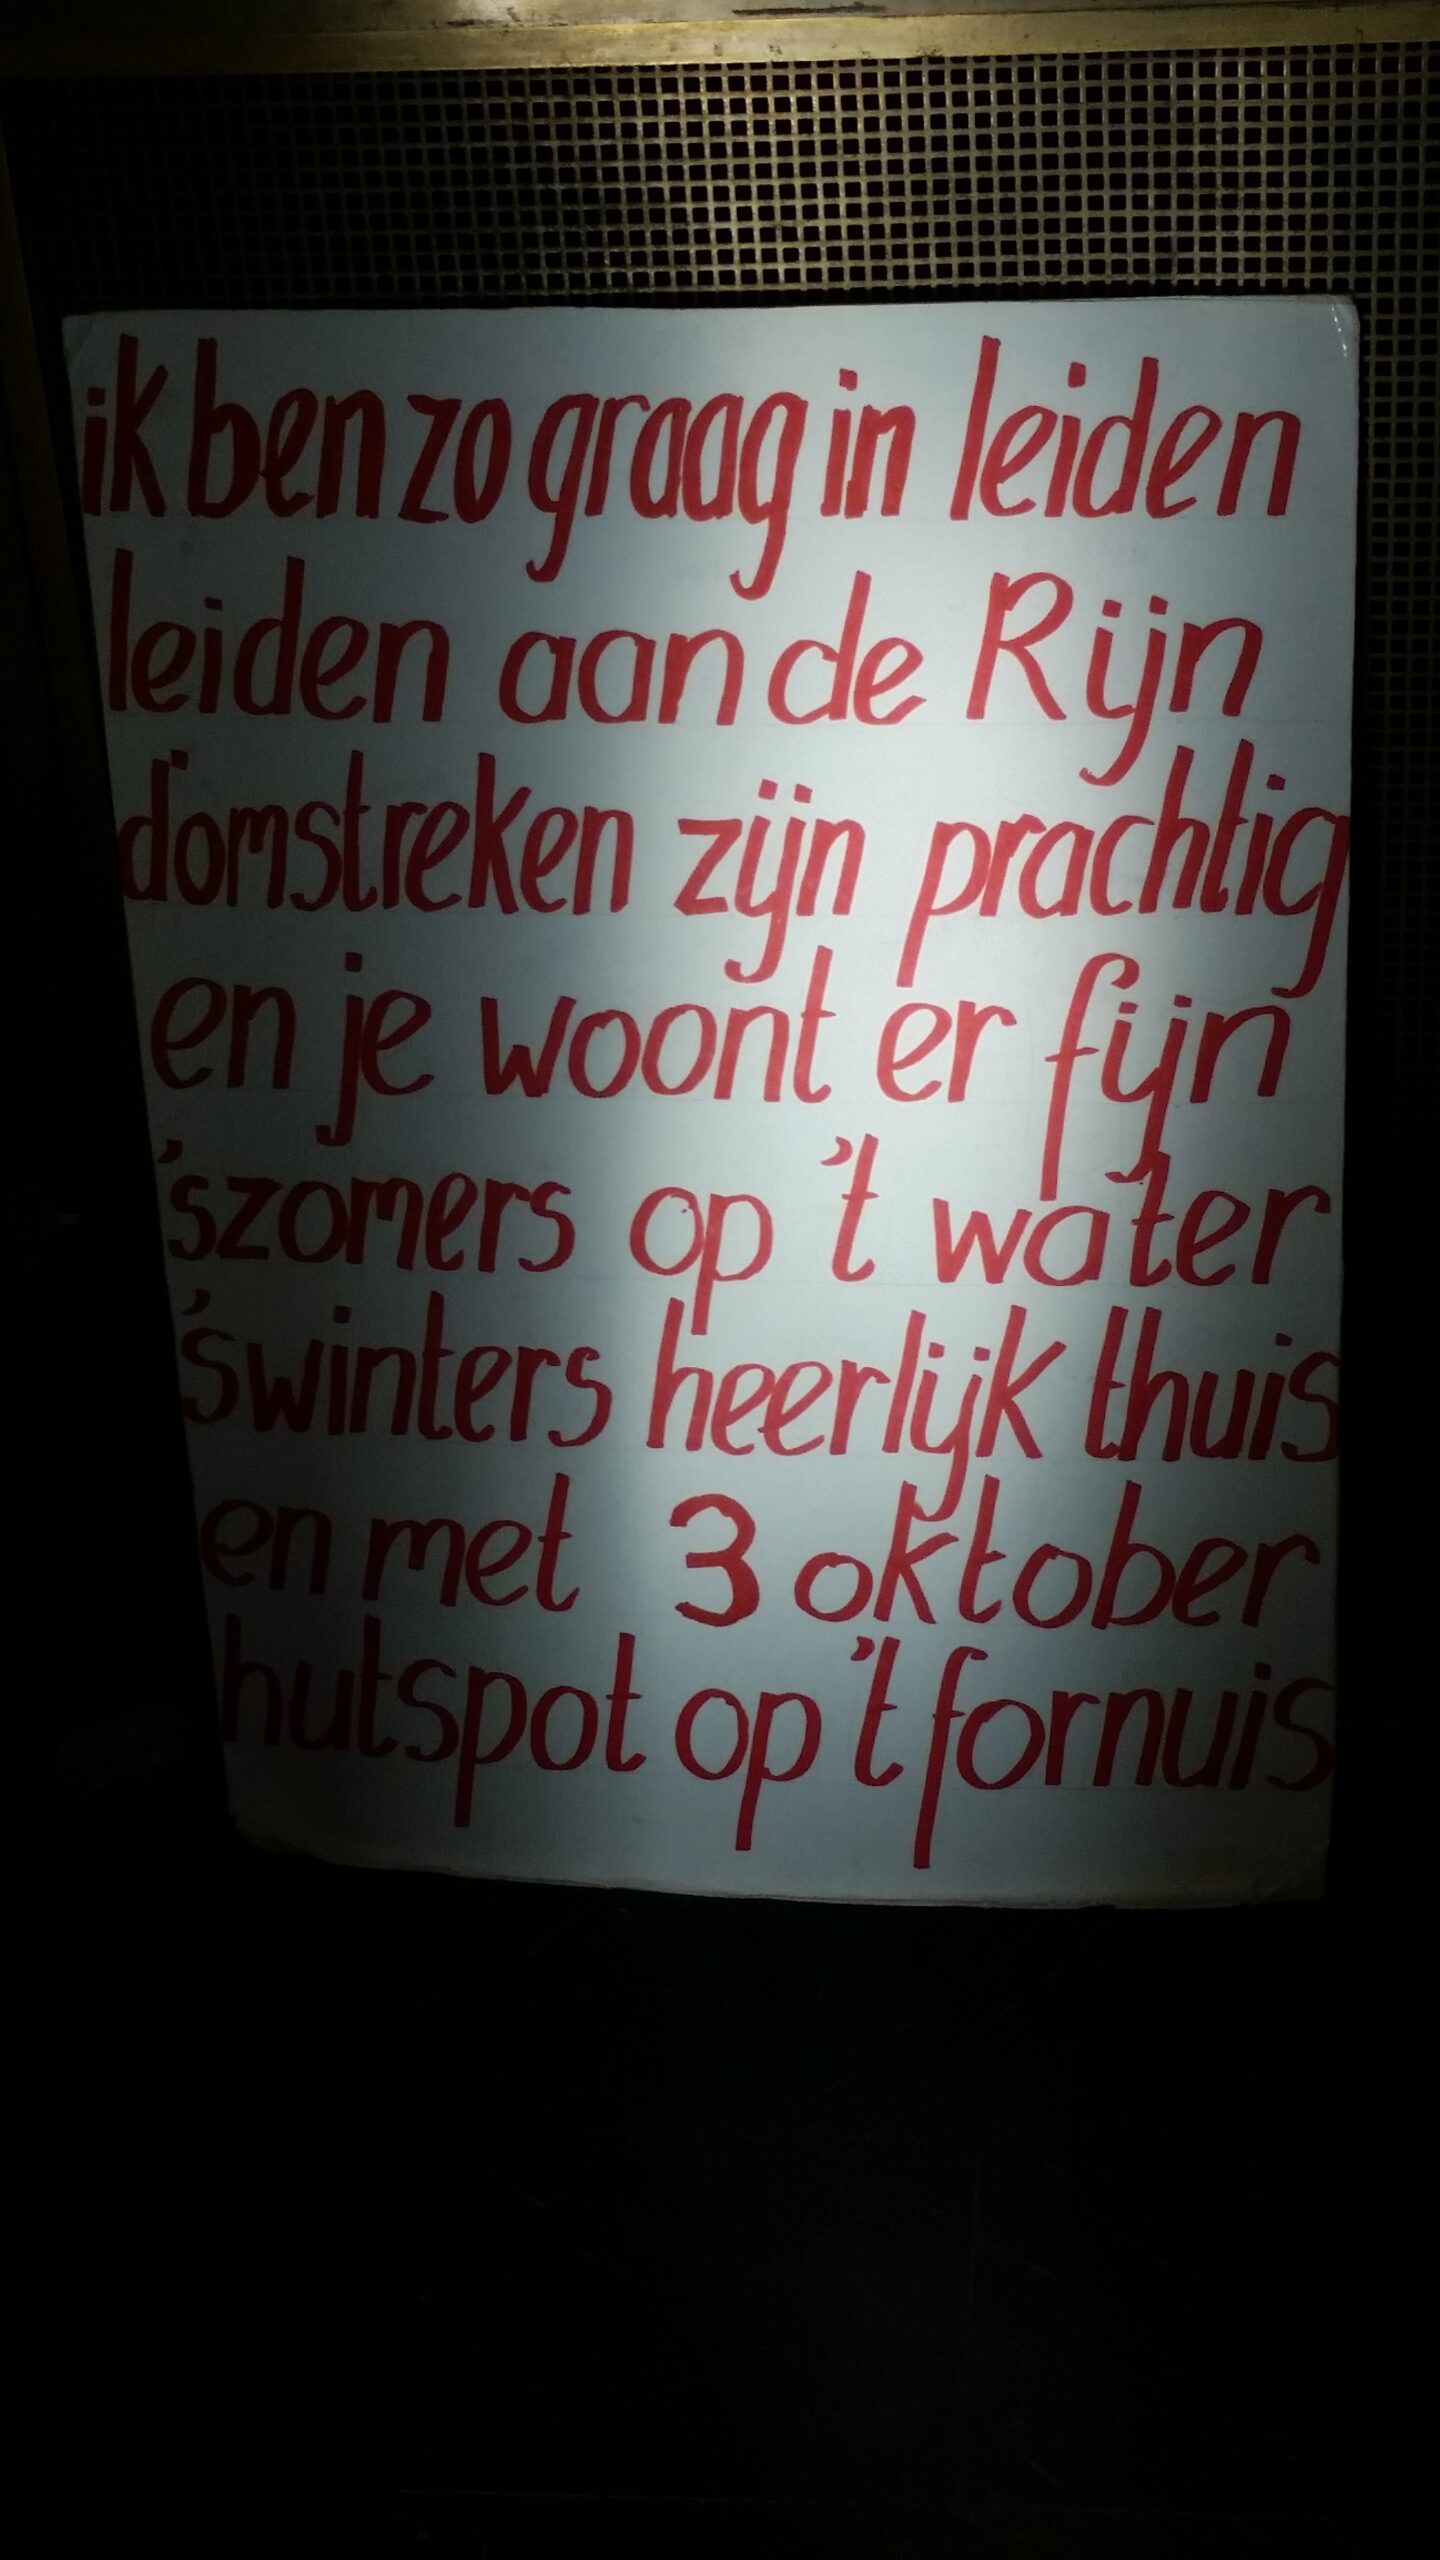 ik ben zo graag in leiden
leiden aan de Rijn
d'omstreken zijn prachtig
en je woont er fijn
'szomers op 't water
'swinters heerlijk thuis
en met 3 oktober
hutspot op 't fornuis